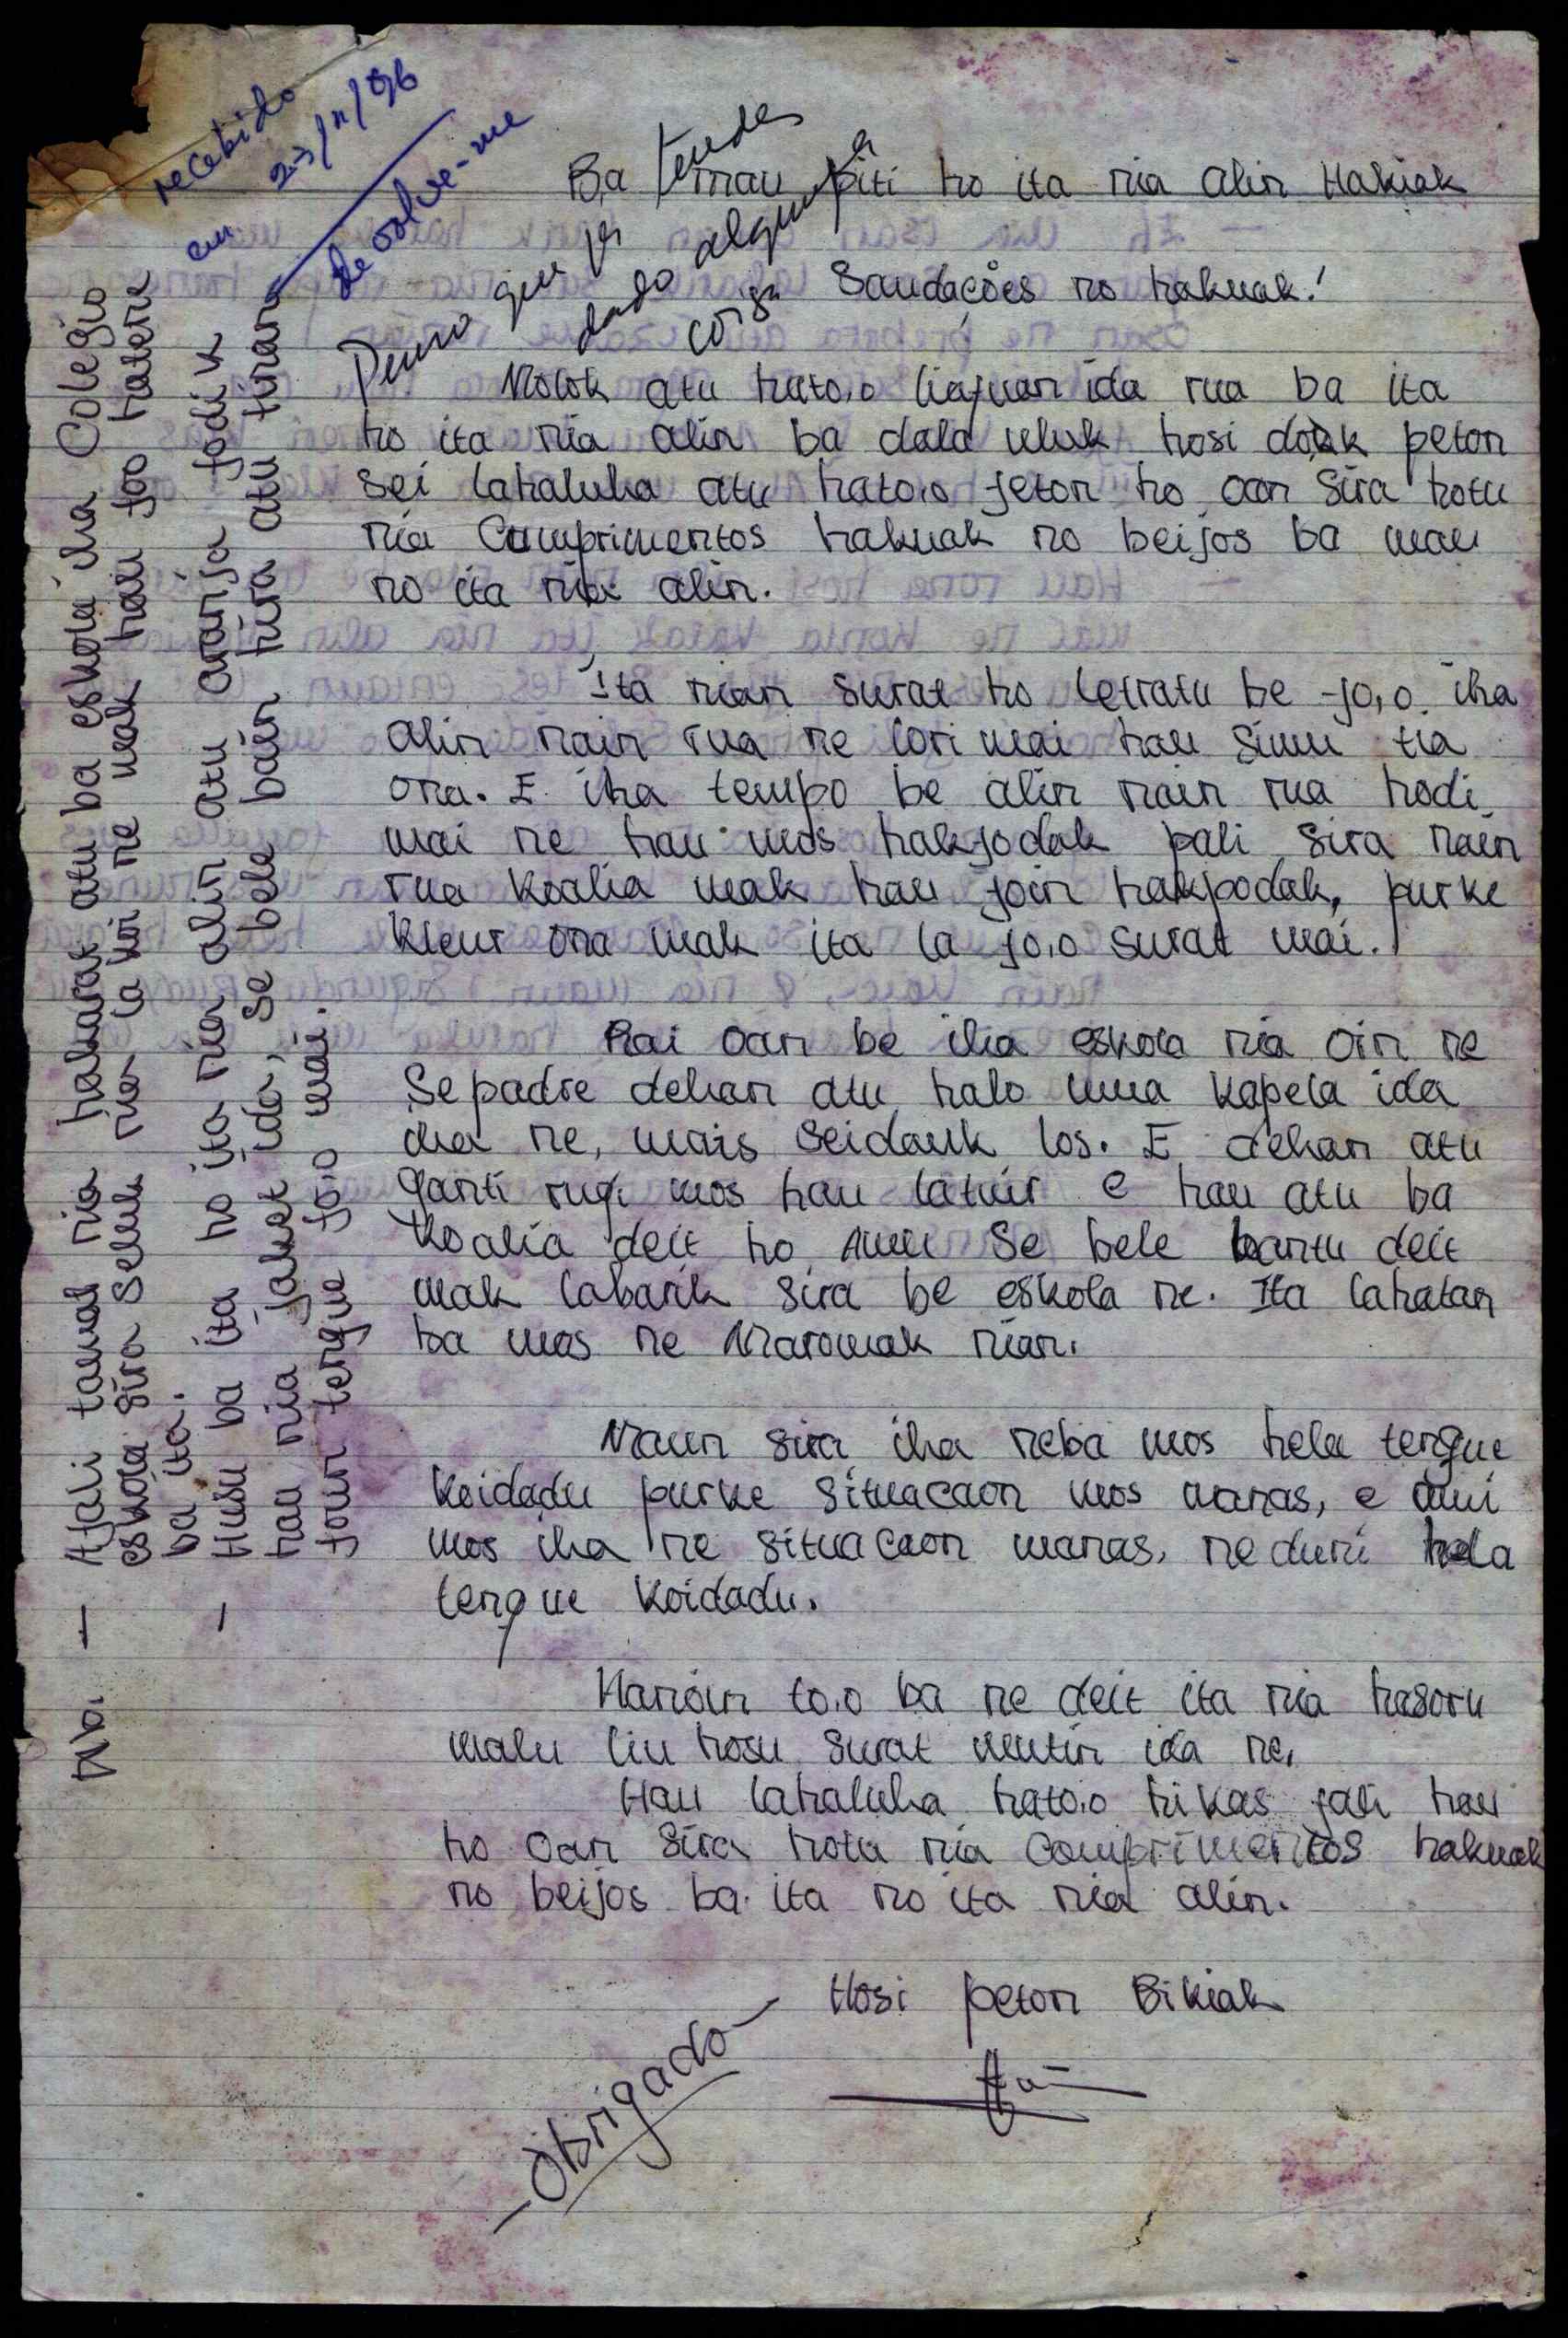 recebido
em 23/11/96
devolve-me
Penso que já tendes
dado alguma
coisa
Ba mau piti ho ita nia alin Hakiak
Saudações no hakuak!
Molok atu hato,o liafuan ida rua ba ita
ho ita nia alin ba dala uluk hosi dook peton
sei lahaluha atu hato,o feton ho oan sira hotu
nia Cumprimentos hakuak no beijos ba mau
no ita nia alin.
Ita nian surat ho letratu be fo,o iha
alin nain rua ne lori mai hau simu tia
ona. E iha tempo be alin nain rua hodi
mai ne hau mos hakfodak fali sira nain
rua koalia mak hau foin hakfodak, purke
kleur ona mak ita la fo,o surat mai.
Kai oan be iha eskola nia oin ne
Se padre dehan atu halo uma kapela ida
iha ne, mais seidauk los. E dehan atu
ganti rugi mos hau latuir e hau atu ba
koalia deit ho Amu Se bele bantu deit
mak labarik sira be eskola ne. Ita lahatan
ba mos ne Maromak nian.
Maun sira iha neba mos hela tengue
koidadu purke situacaon mos manas, e ami
mos iha ne situacaon manas, neduni hela
tengue koidadu.
Hanoin to,o ba ne deit ita nia hasoru
malu liu hosu surat mutin ida ne,
Hau lahaluha hato,o hikas fali hau
ho oan sira hotu nia comprimentos hakuak
no beijos ba ita no ita nia alin.
Hosi peton Bikiak
- Obrigado -
Nb. — Afali tamat nia hakarak atu ba eskola iha Colegio
eskola sira seluk nia la koi ne mak hau foo hatene
ba ita.
— Husu ba ita ho ita nia alin atu aranja fodik
hau nia jaket ida, se bele bain hira atu hiraran
foin tengue fo,o mai.